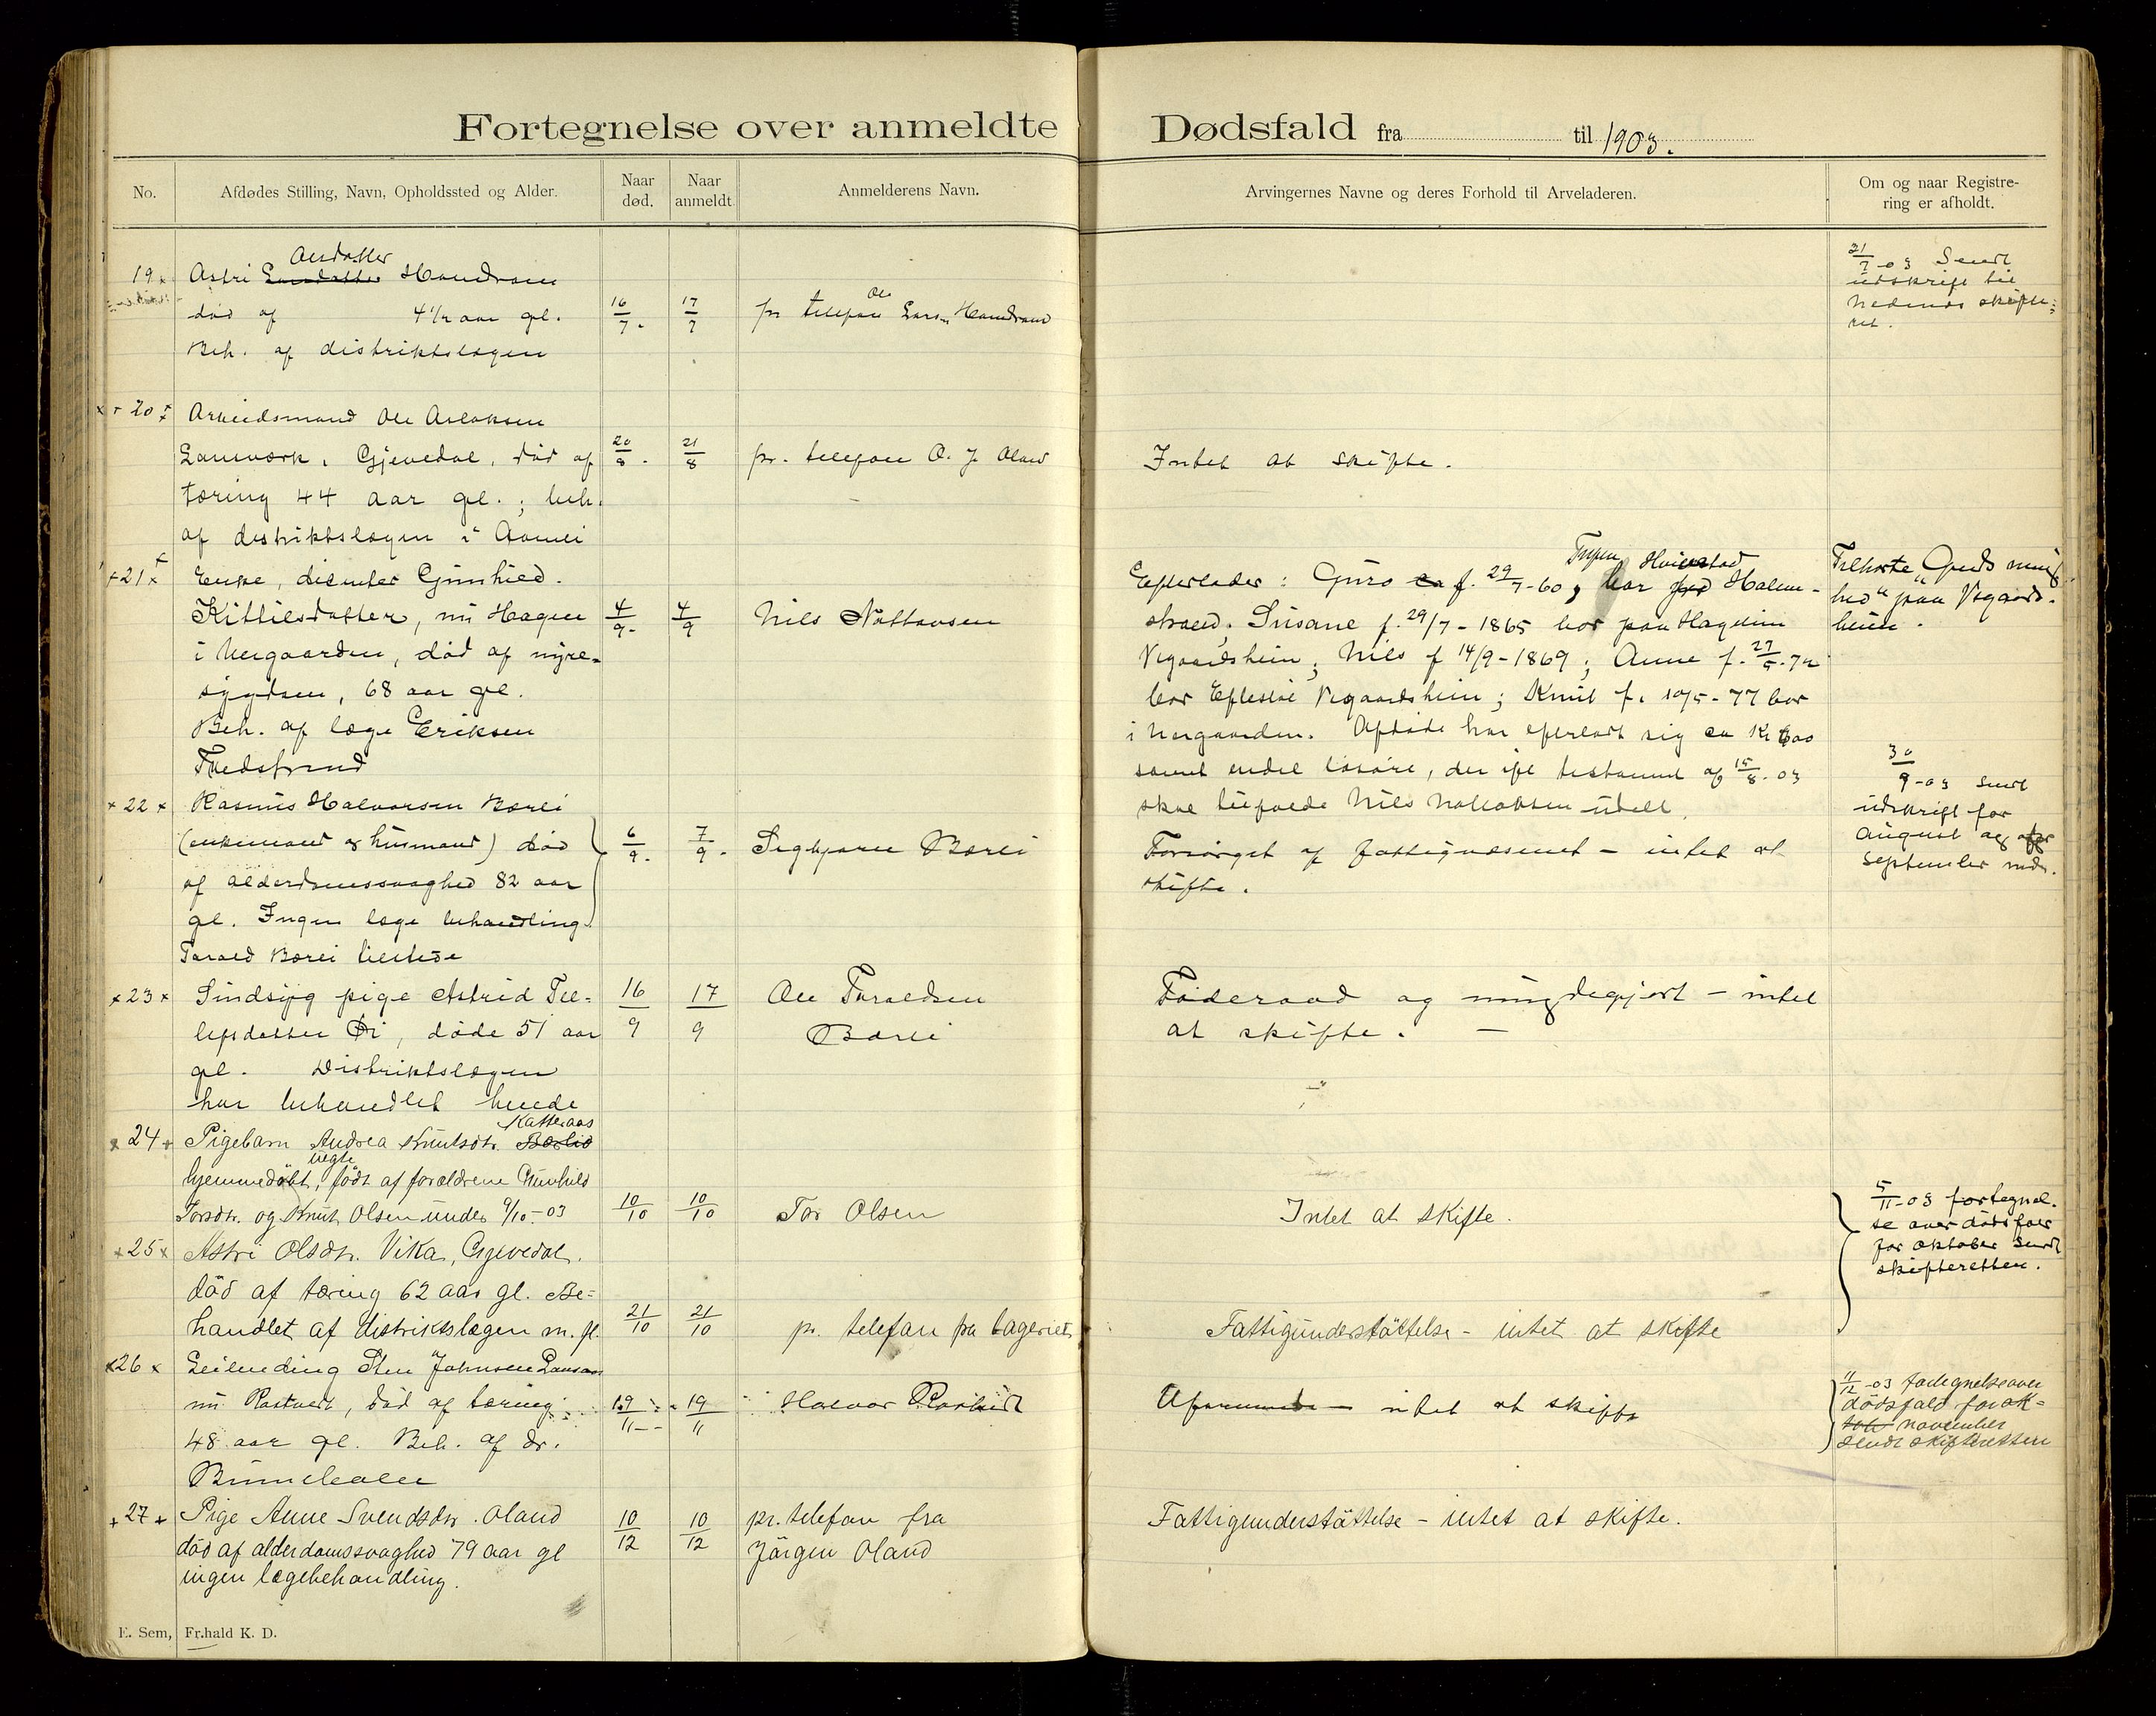 Fortegnelse over anmeldte Dødsfald fra til 1903.
No.
Afdødes Stilling, Navn, Opholdssted og Alder.
Naar død.
Naar anmeldt
Anmelderens Navn.
Arvingernes Navne og deres Forhold til Arveladeren.
Om og naar Registrering er afholdt.
19 x
Astri
død af 4 1/2 aar gl.
Beh. af distriktslægen
16/7.
17/7
pr telefon Ole
21/7-03 Sendt
udskrift til
Nedenes skifte-
ret.
x + 20 x
Arbeidsmand Ole Aslaksen
Gjevedal, død af
tæring 44 aar gl.; beh.
af distriktslægen i Aamli
20/8.
21/8
pr. telefon O. J.
Intet at skifte.
x 21 x
Enke, dissenter Gunhild
Kittilsdatter, nu Hagen
i Nergaarden, død af nyre-
sygdom, 68 aar gl.
Beh. af læge Eriksen
Tvedstrand
4/9.
4/9
Nils
Efterlader: Guro f. 29/7-60, bor Holum-
strand; Susane f. 29/7-1865 bor paa
Vegaardshein; Nils f 14/9-1869; Anne f.
bor Vegaardshein; Knut f. 10/5-77 bor
i Nergaarden. Afdøde har efterladt sig ca Kr
samt endel løsøre, der ifl testament af 15/8-03
skal tilfalde Nils udelt.
Tilhørte "Guds menig-
hed" paa Vegaards-
heien.
x 22 x
Rasmus Halvorsen Borli
(enkemand og husmand) død
af alderdomssvaghed 82 aar
gl. Ingen læge behandling.
Tarald Borli tilstede
6/9.
7/9.
Sigbjørn Borli
Forsørget af fattigvæsenet - intet at
skifte.
30/9-03 sendt
udskrift for
august og
september mdr.
x 23 x
Sindsyg pige Astrid Tel-
lefsdatter, døde 51 aar
gl. Distriktslægen
har behandlet hende
16/9
17/9
Ole Taraldsen
Borli
Føderaad og myndegjort - intet
at skifte. -
x 24 +
Pigebarn Andrea Knutsdtr. Katteraas Borlid
hjemmedøbt, uegte født af forældrene Gunhild
Torsdtr. og Knut Olsen under 9/10-03
10/10
10/10
Tor Olsen
Intet at skifte.
5/11-03 fortegnel-
se over dødsfald
for oktober sendt
skifteretten.
x 25 x
Astri Olsdtr. Vika, Gjevedal.
død af tæring 62 aar gl. Be-
handlet af distriktslægen m. fl.
21/10
21/10
pr. telefon fra
Fattigunderstøttelse - intet at skifte
x 26 x
Leilending Sten Johnsen
nu Rostveit, død af tæring
48 aar gl. Beh. af dr.
19/11
19/11
Halvor
intet at skifte
11/12-03 fortegnelse over
dødsfald for ok-
tob november
sendt skifteretten
+ 27 +
Pige Anne Svendsdtr. Oland
død af alderdomssvaghed 79 aar gl
ingen lægebehandling.
10/12
10/12
pr. telefon fra
Jørgen Oland
Fattigunderstøttelse - intet at skifte.
E. Sem, Fr.hald K. D.